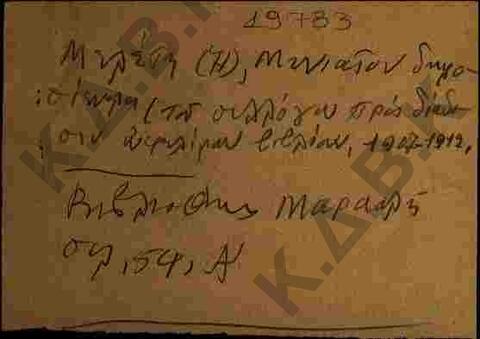 19783
Μελέτη (Ἡ), Μηνιαῖον δημο-
σίευμα (τοῦ συλλόγου πρὸς διάδο-
σιν ὠφελίμων βιβλίων, 1907-1912.
Βιβλιοθήκη Μαρασλῆ
σελ, 54, Α'
Κ.Δ.Β.Κ
Κ.Δ.Β.Κ